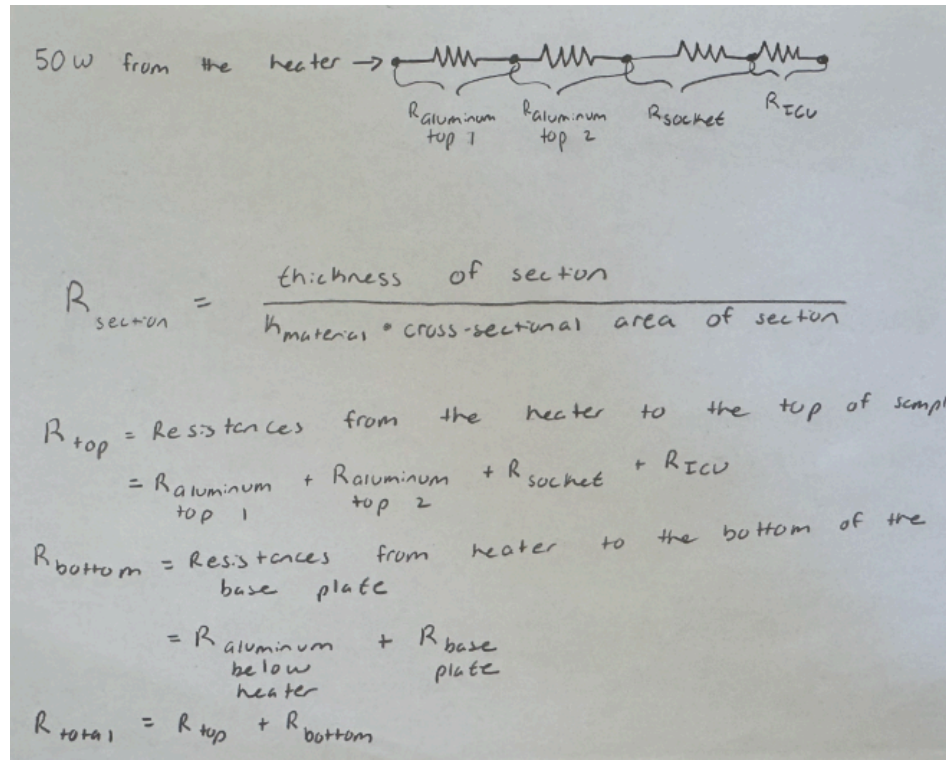 50 w from the heater →
R aluminum top 1 R aluminum top 2 R socket R ICU
R section = thickness of section / k material • cross-sectional area of section
R top = Resistances from the heater to the top of sampl
= R aluminum top 1 + R aluminum top 2 + R socket + R ICU
R bottom = Resistances from heater to the bottom of the
base plate
= R aluminum below heater + R base plate
R total = R top + R bottom